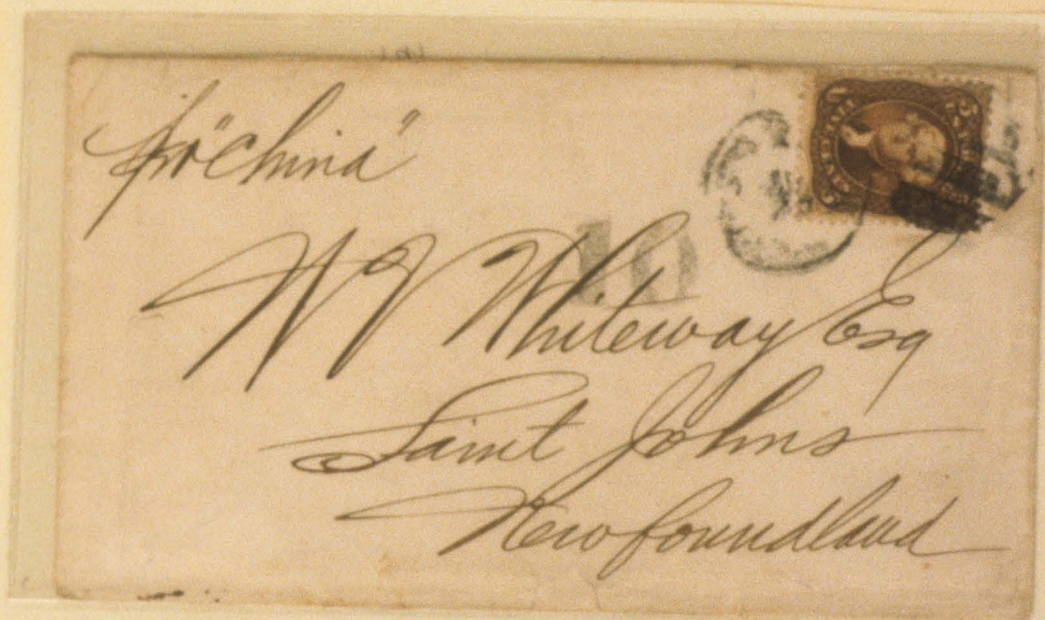 pr "China"
10
W V Whiteway Esq
Saint Johns
Newfoundland